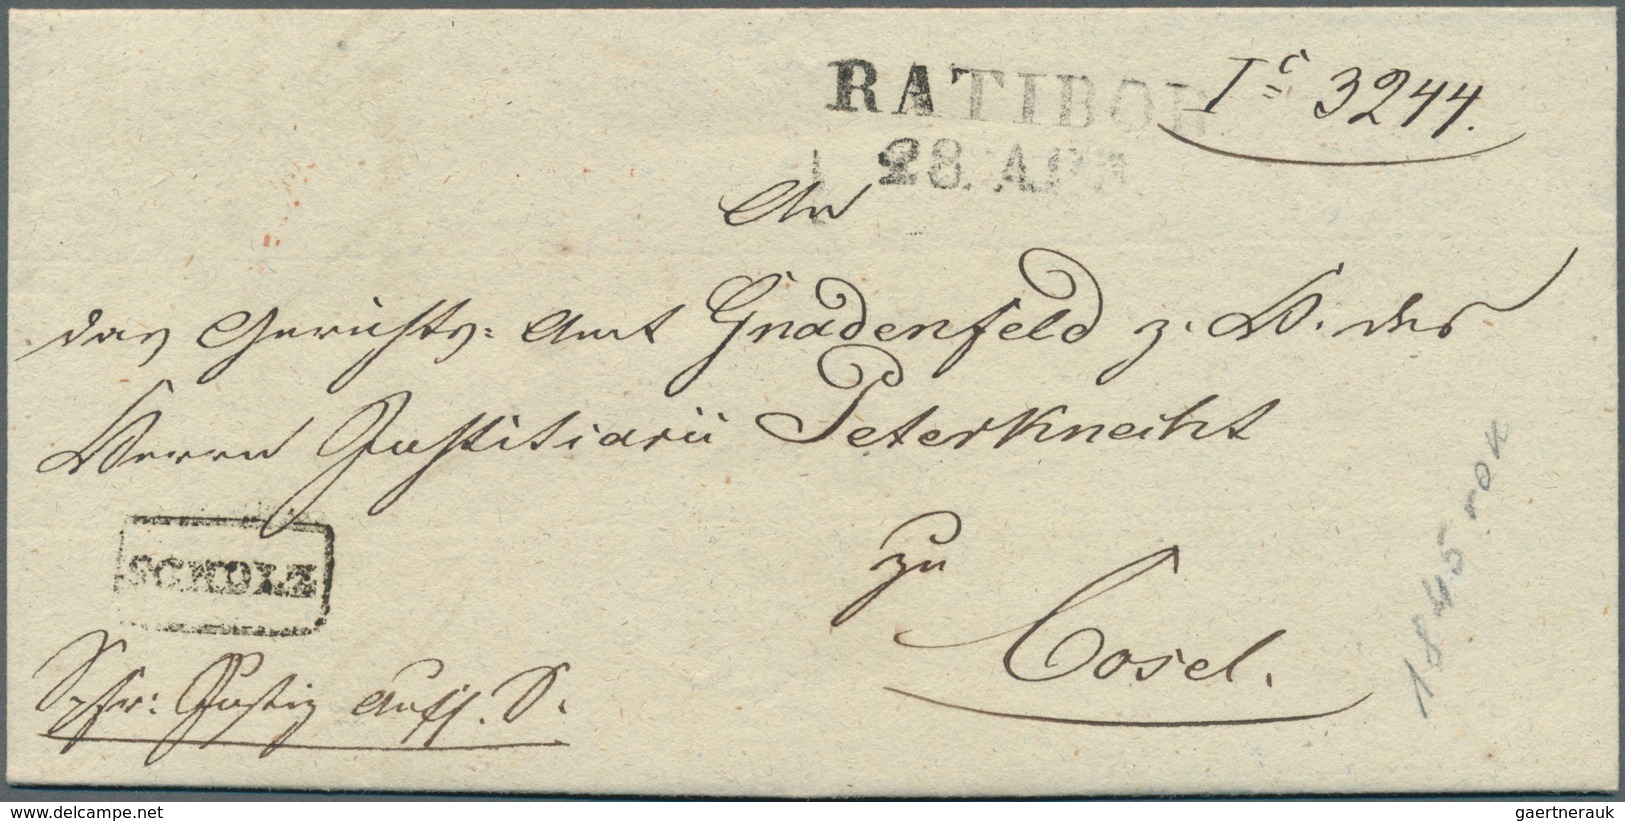 RATIBOR
Ic 3244.
28. APR.
An
das Gerichts: Amt Gnadenfeld z. H. des
Herrn Justitiarii Peterknecht
SCHOLZ
zu
Cosel.
Justiz Auff. S.
1845 rok
www.delcampe.net
gaertnerauk